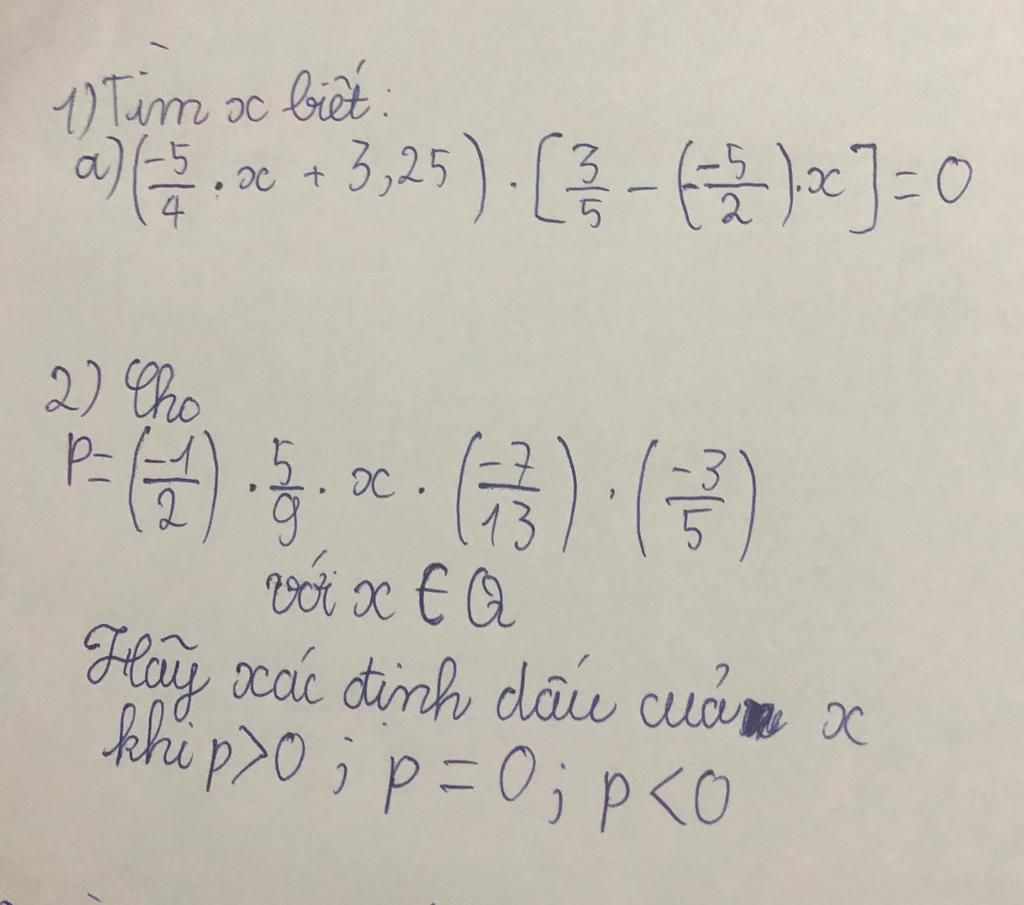 1) Tìm x biết:
a) (-5/4 . x + 3,25) . [3/5 - (-5/2).x] = 0
2) Cho
P = (-1/2) . 5/9 . x . (-7/13) . (-3/5)
với x ∈ Q
Hãy xác định dấu của x
khi p>0 ; p = 0 ; p < 0